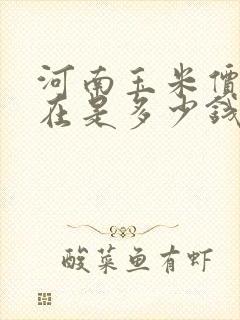 河南玉米價
在是多少錢
酸菜鱼有虾